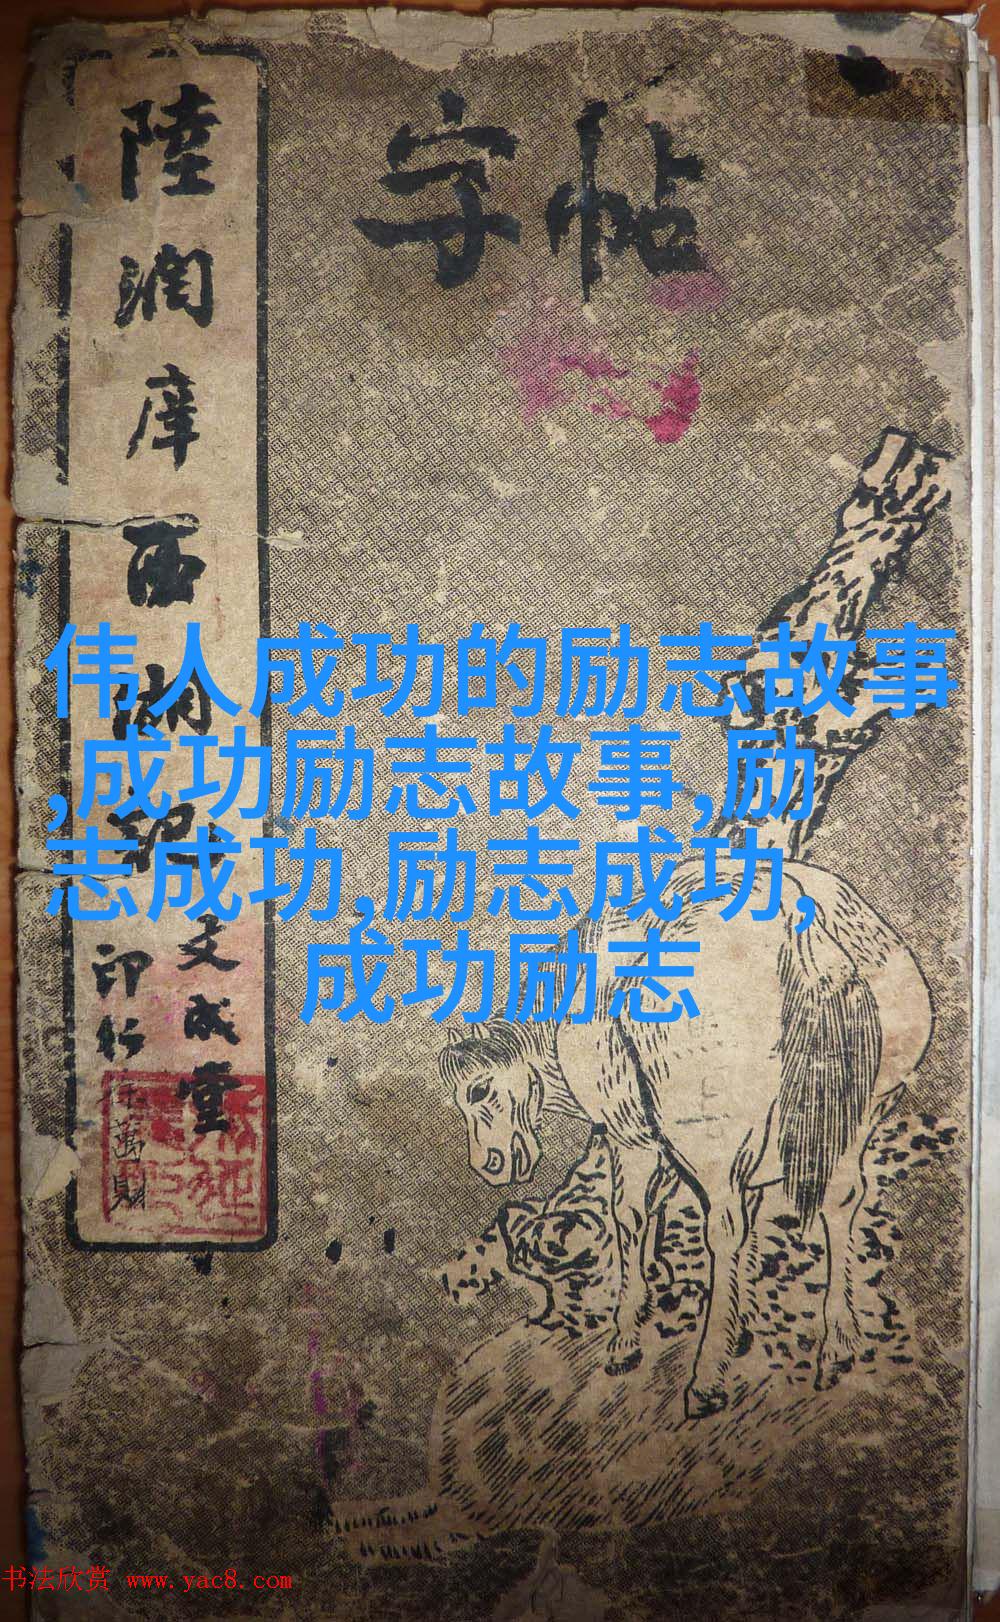 字帖
陸潤庠西湖記
文成堂
印行
徐萬財
伟人成功的励志故事
,成功励志故事,励
志成功,励志成功,
成功励志
书法欣赏 www.yac8.com